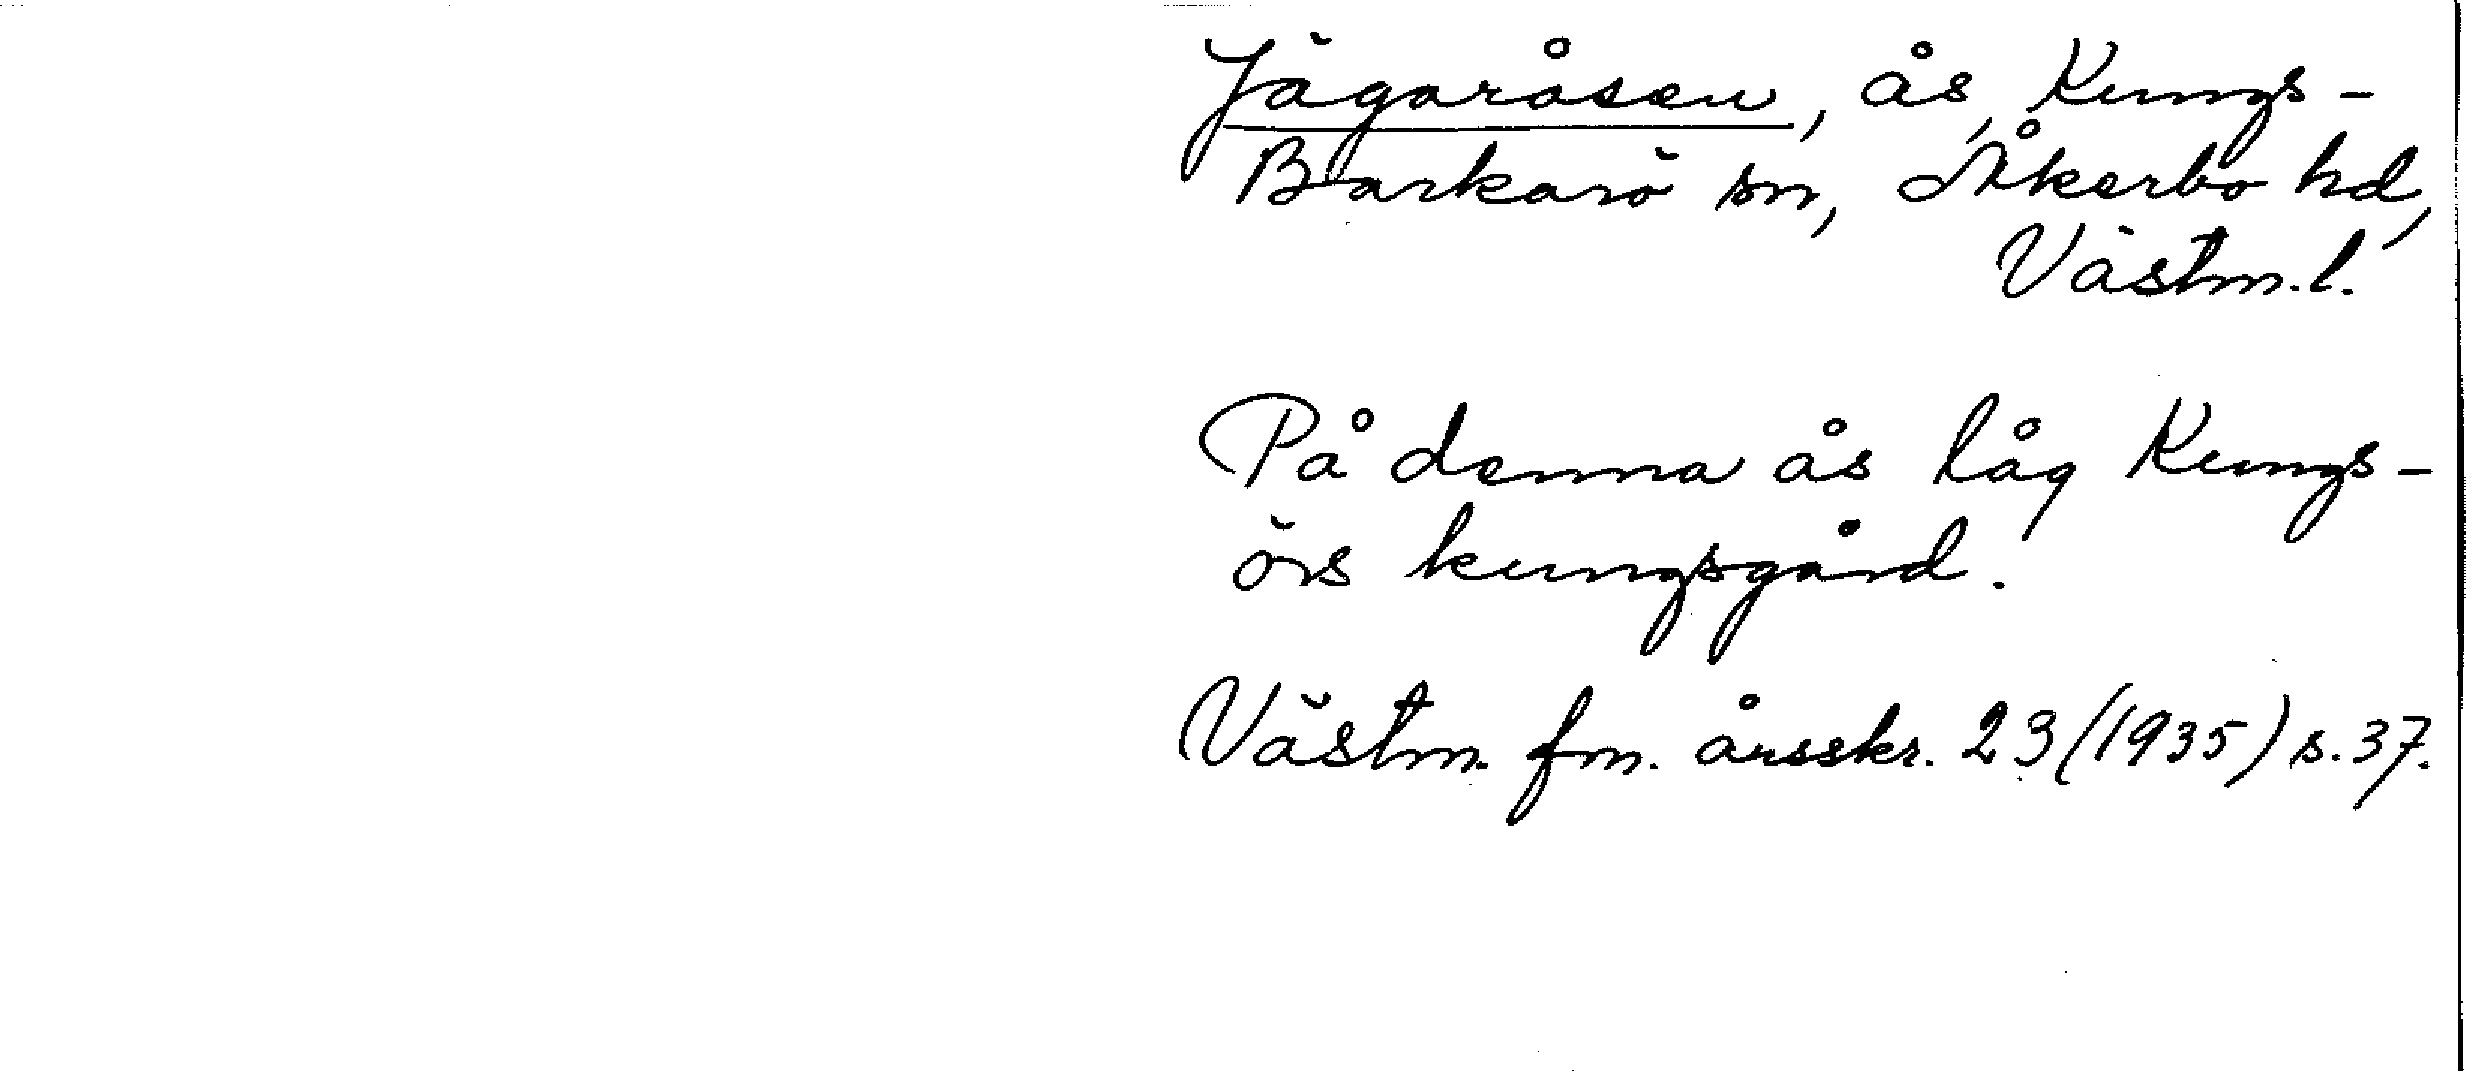 Jägaråsen, ås, Kungs-
Barkarö sn, Åkerbo hd,
Västm.l.
På denna ås låg Kungs-
örs kungsgård.
Västm. fm. årsskr. 23 (1935) s. 37.